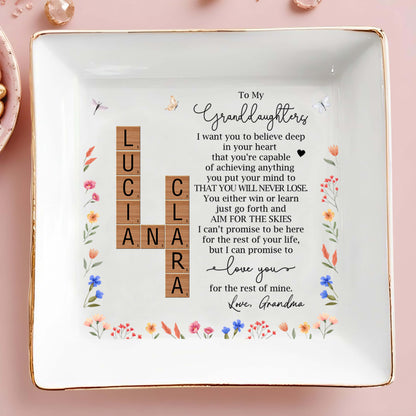 To My
Granddaughters
I want you to believe deep
in your heart
that you're capable
of achieving anything
you put your mind to
THAT YOU WILL NEVER LOSE.
You either win or learn
just go forth and
AIM FOR THE SKIES
I can't promise to be here
for the rest of your life,
but I can promise to
love you
for the rest of mine.
Love, Grandma
LUCIA
N
CLARA